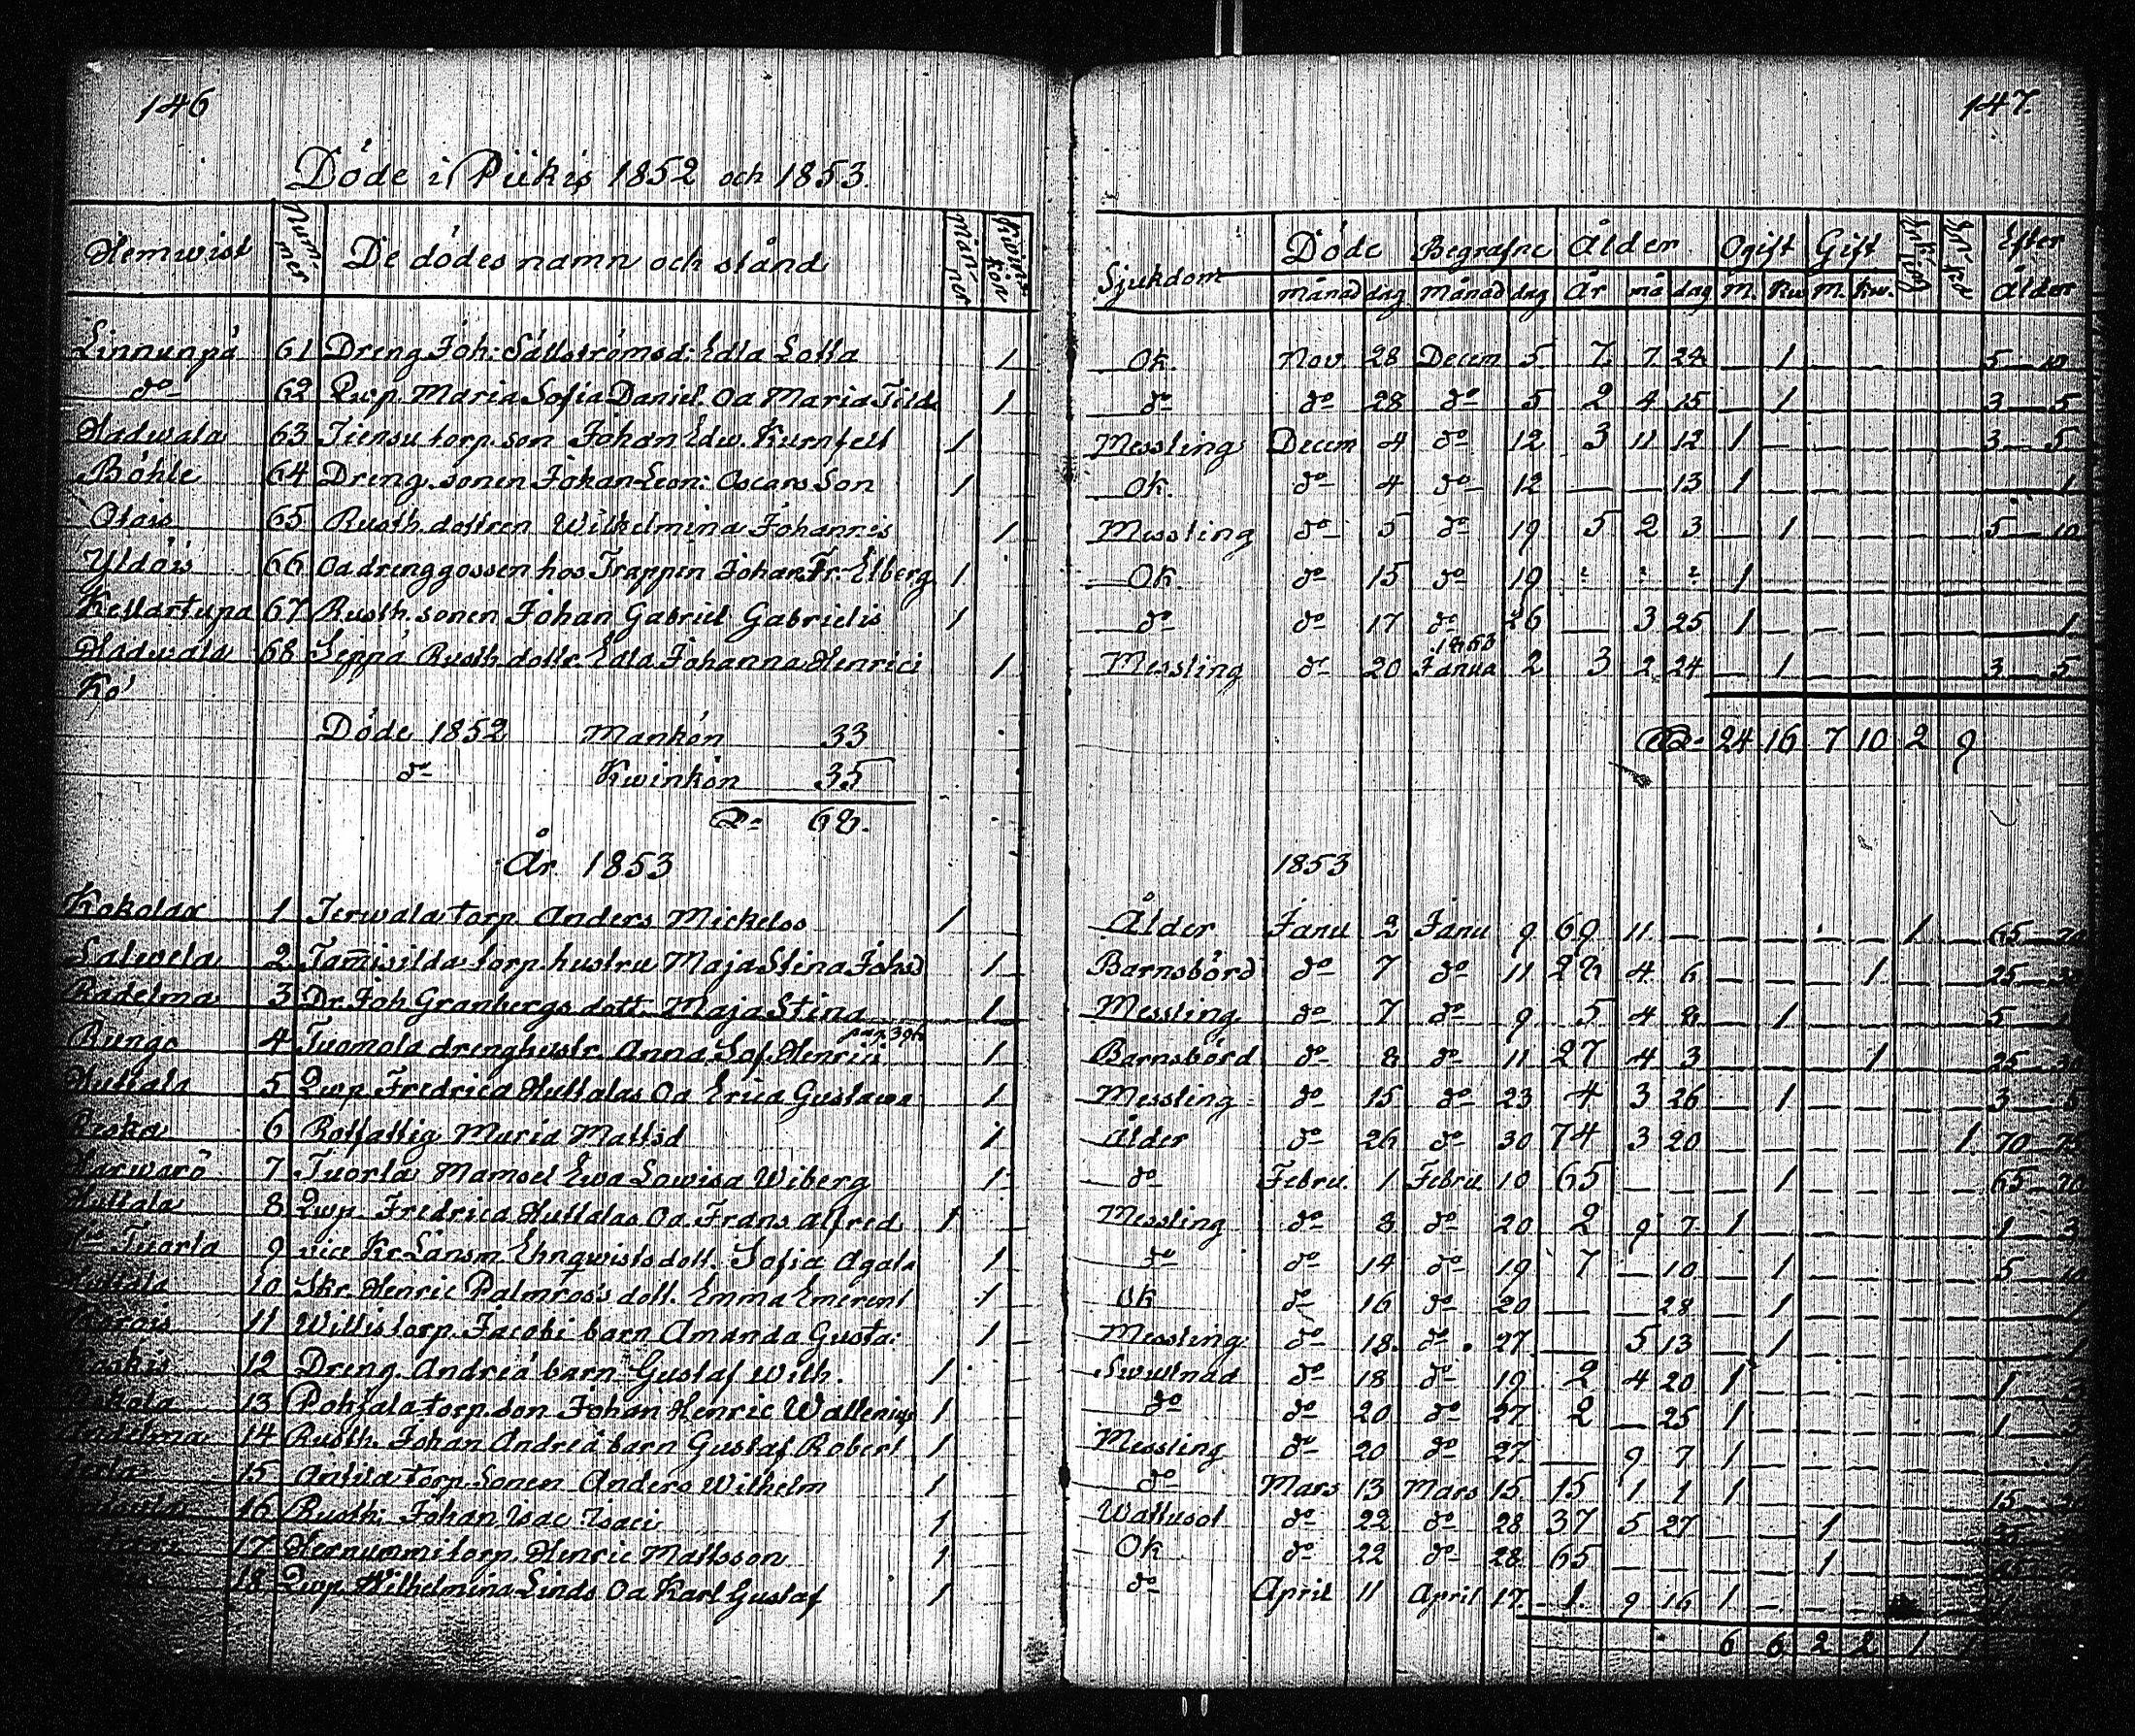 146
Döde i Piikis 1852 och 1853.
Hemwist Nummer De dödes namn och stånd Männer Kwinkön
Linnunpä 61 Dreng Joh: Sällströms d: Edla Lolla 1
do 62 Qwp. Maria Sofia Daniel. Oa Maria Tilda 1
Hadwala 63 Tiensu torp. son Johan Edw. Kurnfelt 1
Böhle 64 Dreng. sonen Johan Leon: Oscars Son 1
Otais 65 Rusth. dottren Wilhelmina Johannis 1
Yldöis 66 Oa drenggossen hos Trappen Johan Fr. Elberg 1
Kellartupa 67 Rusth. sonen Johan Gabriel Gabrielis 1
Hadwala 68 Seppä Rusth. dottr. Edla Johanna Henrici 1
Kö
Döde 1852 Mankön 33
do Kwinkön 35
S:a 68.
År 1853
Kokolax 1 Jerwala torp. Anders Mickelss 1
Salwela 2 Tamisilda torp. hustru Maja Stina Johsd 1
Radelma 3 Dr. Joh Granbergs dott. Maja Stina 1
Runge 4 Tuomola drenghustr. Anna Sof. Henrici 1
Huttala 5 Qwp Fredrica Huttalas Oa Erica Gustava 1
Raska 6 Rotfattig Maria Mattsd 1
Harwarö 7 Tuorla Mamsel Ewa Lowisa Wiberg 1
Huttala 8 Qwp Fredrica Huttalas Oa Frans Alfred 1
Tuorla 9 vice Kr. Länsm. Ehnqwists dott. Sofia Agata 1
Huttala 10 Skr. Henric Palmros's dott. Emma Emerent 1
11 Willis torp. Jacobi barn Amanda Gusta: 1
12 Dreng. Andreä barn Gustaf Wilh. 1
13 Pohjala torp. son Johan Henric Wallenius 1
14 Rusth. Johan Andreä barn Gustaf Robert 1
15 Antila torp. Sonen Anders Wilhelm 1
16 Rusth: Johan Isac Isaci 1
17 Hernummi torp. Henric Mattsson 1
18 Qwp Wilhelmina Linds Oa Karl Gustaf 1
147.
Sjukdom Döde Begrafne Ålder Ogift Gift Efter Ålder
månad dag Månad dag År må dag M. Kw M. Kw.
Ok. Nov. 28 Decem 5 7 7 24 1 5–10
do do 28 do 5 2 4 15 – 1 3–5
Messling Decem 4 do 12 3 11 12 1 3–5
Ok. do 4 do 12 – – 13 1 – 1
Messling do 5 do 19 5 2 3 – 1 5–10
Ok. do 15 do 19 ? ? ? 1
do do 17 do 26 – 3 25 1 – 1
1853
Messling do 20 Janua 2 3 2 24 – 1 3–5
S:a 24 16 7 10 2 9
1853
Ålder Janu 2 Janu 9 69 11 – 1 65–70
Barnsbörd do 7 do 11 28 4 6 1 25–30
Messling do 7 do 9 5 4 8 1 5–
Barnsbörd do 8 do 11 27 4 3 1 25–30
Messling do 15 do 23 4 3 26 1 3–5
Ålder do 26 do 30 74 3 20 1 70–75
do Febru. 1 Febru. 10 65 – – 1 65–70
Messling do 8 do 20 2 9 7 1 1–3
do do 14 do 19 7 – 10 1 5–10
Ok do 16 do 20 – – 28 1 1
Messling do 18 do 27 – 5 13 1 1
Swullnad do 18 do 19 2 4 20 1 1
do do 20 do 27 2 – 25 1 1–3
Messling do 20 do 27 – 9 7 1
do Mars 13 Mars 15 15 1 1 1 15–20
Wattusot do 22 do 28 37 5 27 1
Ok do 22 do 28 65 – – 1
do April 11 April 17 1 9 16 1
6 6 2 2 1 1